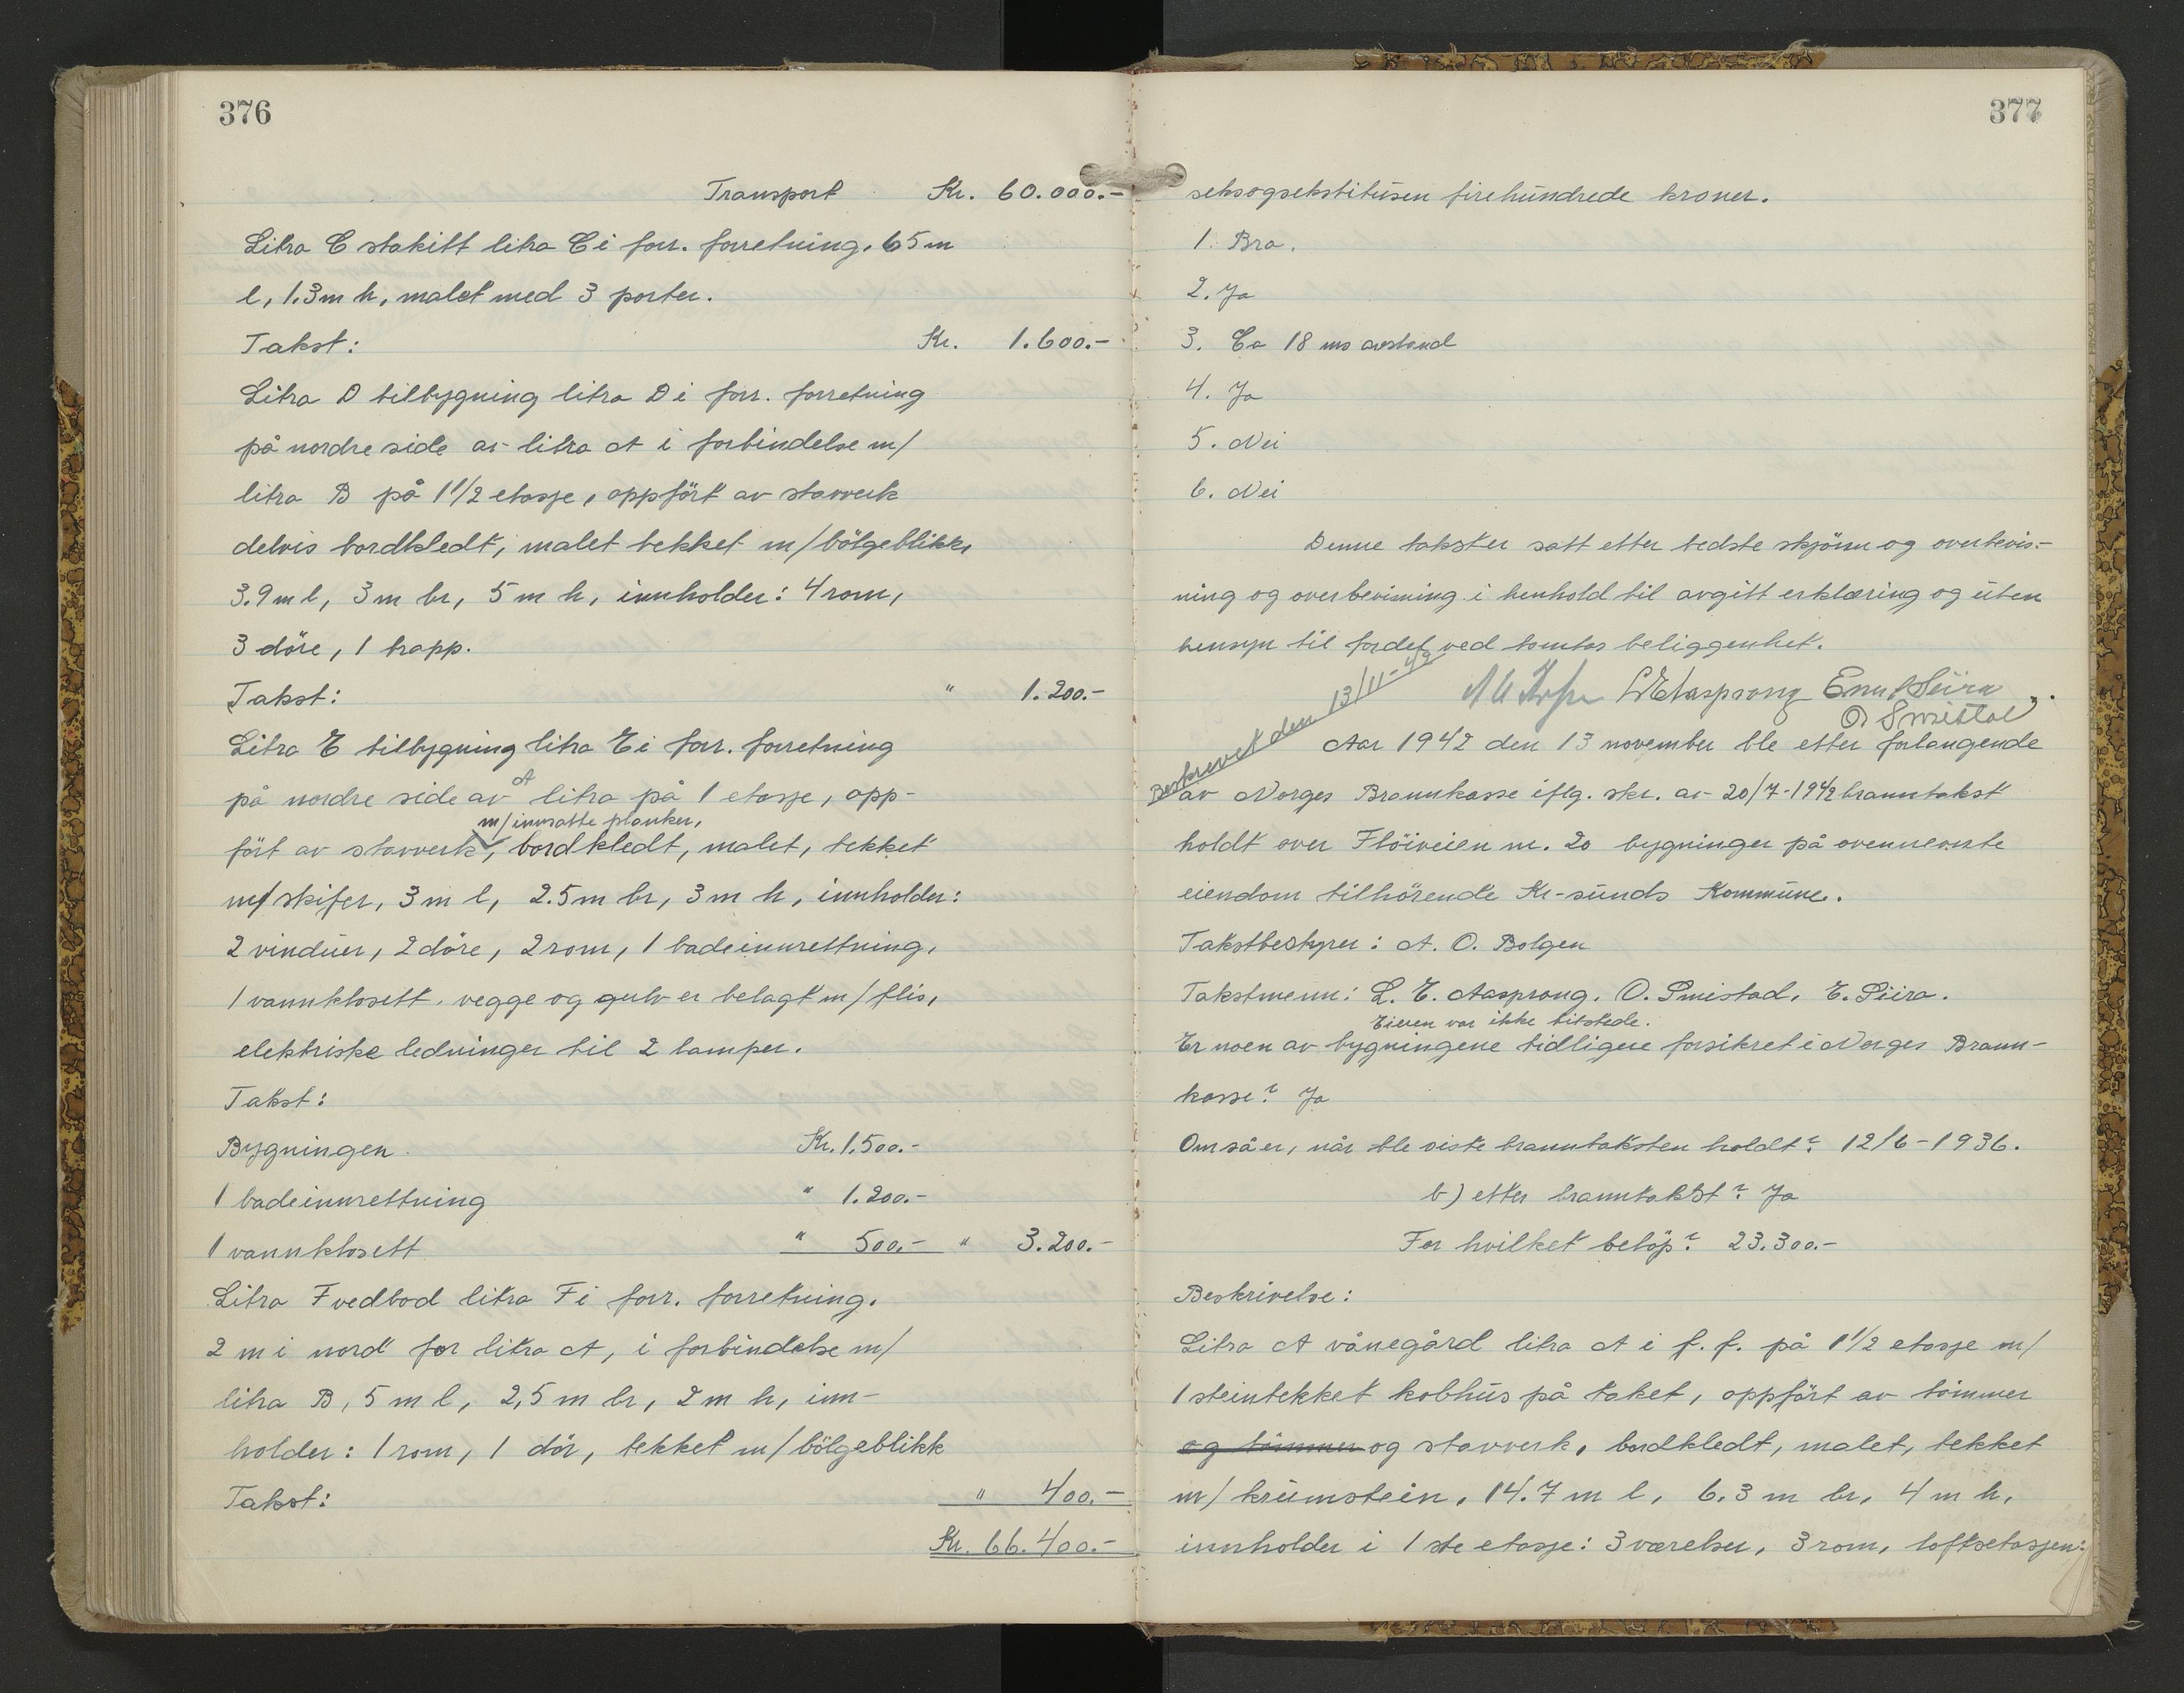 376
Transport Kr. 60.000.-
Litra C stakitt litra C i forr. forretning. 65 m
l, 1.3 m h, malet med 3 porter.
Takst: Kr. 1.600.-
Litra D tilbygning litra D i forr. forretning
på nordre side av litra A i forbindelse m/
litra B på 1 1/2 etasje, oppfört av stavverk
delvis bordkledt, malet tekket m/bölgeblikk,
3.9 m l, 3 m br, 5 m h, innholder: 4 rom,
3 döre, 1 trapp.
Takst: " 1.200.-
Litra E tilbygning litra E i forr. forretning
A
på nordre side av litra på 1 etasje, opp-
m/innsatte planker,
fört av stavverk, bordkledt, malet, tekket
m/skifer, 3 m l, 2.5 m br, 3 m h, innholder:
2 vinduer, 2 döre, 2 rom, 1 badeinnrettning,
1 vannklosett. vegge og gulv er belagt m/flis,
elektriske ledninger til 2 lamper.
Takst:
Bygningen Kr. 1.500.-
1 badeinnrettning " 1.200.-
1 vannklosett " 500.- " 3.200.-
Litra F vedbod litra F i forr. forretning.
2 m i nord for litra A, i forbindelse m/
litra B, 5 m l, 2,5 m br, 2 m h, inn-
holder: 1 rom, 1 dör, tekket m/bölgeblikk
Takst: " 400.-
Kr. 66.400.-
377
seksogsekstitusen firehundrede kroner.
1. Bra.
2. Ja
3. Ca 18 ms avstand
4. Ja
5. Nei
6. Nei
Denne takster satt etter bedste skjönn og overbevis-
ning og overbevisning i henhold til avgitt erklæring og uten
hensyn til fordel ved tomtas beliggenhet.
LEAasprong Emil Siira
O Smistad
Beskrevet den 13/11-42
Aar 1942 den 13 november ble etter forlangende
av Norges Brannkasse iflg. skr. av 20/7-1942 branntakst
holdt over Flöiveien nr. 20 bygninger på ovennevnte
eiendom tilhörende Kr-sunds Kommune.
Takstbestyrer: A. O. Bolgen
Takstmenn: L. E. Aasprong. O. Smistad. E. Siira.
Eieren var ikke tilstede.
Er noen av bygningene tidligere forsikret i Norges Brann-
kasse? Ja
Om så er, når ble siste branntaksten holdt? 12/6-1936.
b) etter branntakst? Ja
For hvilket belöp? 23.300.-
Beskrivelse:
Litra A vånegård litra A i f. f. på 1 1/2 etasje m/
1 steintekket kobhus på taket, oppfört av tömmer
og tömmer og stavverk, bordkledt, malet, tekket
m/krumstein, 14.7 m l, 6.3 m br, 4 m h,
innholder i 1 ste etasje: 3 værelser, 3 rom, loftsetasjen: